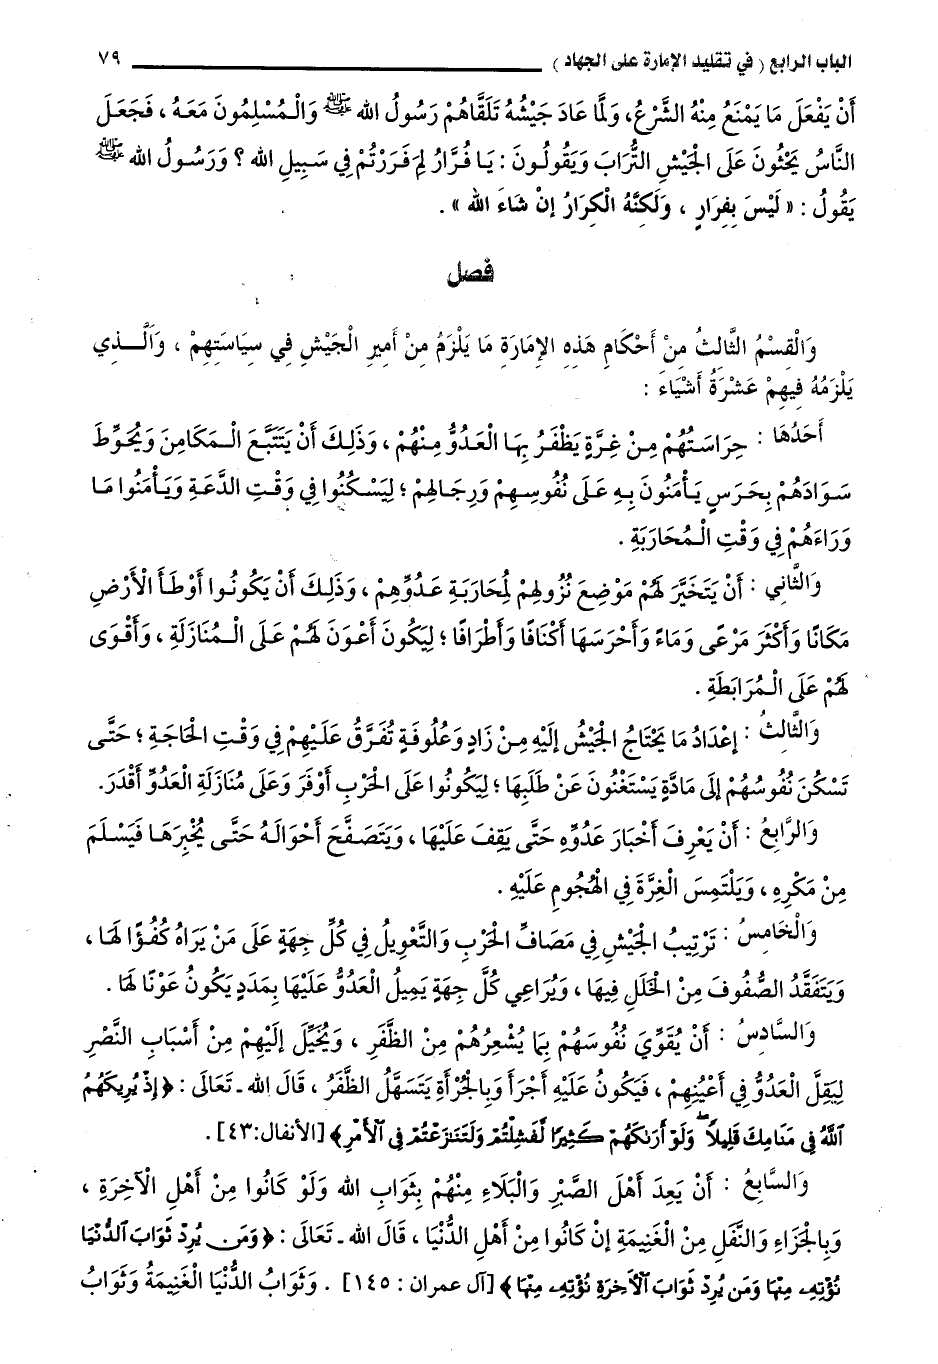 الباب الرابع ( في تقليد الإمارة على الجهاد ) ٧٩
أَنْ يَفْعَلَ مَا يَمْنَعُ مِنْهُ الشَّرْعُ، وَلَمَّا عَادَ جَيْشُهُ تَلَقَّاهُمْ رَسُولُ الله ﷺ وَالْمُسْلِمُونَ مَعَهُ ، فَجَعَلَ
النَّاسُ يَحْثُونَ عَلَى الْجَيْشِ التُّرَابَ وَيَقُولُونَ : يَا فُرَّارُ لِمَ فَرَرْتُمْ فِي سَبِيلِ الله ؟ وَرَسُولُ الله ﷺ
يَقُولُ : « لَيْسَ بِفِرَارٍ ، وَلَكِنَّهُ الْكِرَارُ إِنْ شَاءَ الله » .
فصل
وَالْقِسْمُ الثَّالِثُ مِنْ أَحْكَامِ هَذِهِ الإِمَارَةِ مَا يَلْزَمُ مِنْ أَمِيرِ الْجَيْشِ فِي سِيَاسَتِهِمْ ، وَالَّذِي
يَلْزَمُهُ فِيهِمْ عَشْرَةُ أَشْيَاءَ :
أَحَدُهَا : حِرَاسَتُهُمْ مِنْ غِرَّةٍ يَظْفَرُ بِهَا الْعَدُوُّ مِنْهُمْ ، وَذَلِكَ أَنْ يَتَتَبَّعَ الْمَكَامِنَ وَيُحَوِّطَ
سَوَادَهُمْ بِحَرَسٍ يَأْمَنُونَ بِهِ عَلَى نُفُوسِهِمْ وَرِجَالِهِمْ ؛ لِيَسْكُنُوا فِي وَقْتِ الدَّعَةِ وَيَأْمَنُوا مَا
وَرَاءَهُمْ فِي وَقْتِ الْمُحَارَبَةِ .
وَالثَّانِي : أَنْ يَتَخَيَّرَ لَهُمْ مَوْضِعَ نُزُولِهِمْ لِمُحَارَبَةِ عَدُوِّهِمْ ، وَذَلِكَ أَنْ يَكُونُوا أَوْطَأَ الْأَرْضِ
مَكَانًا وَأَكْثَرَ مَرْعًى وَمَاءً وَأَحْرَسَهَا أَكْنَافًا وَأَطْرَافًا ؛ لِيَكُونَ أَعْوَنَ لَهُمْ عَلَى الْمُنَازَلَةِ ، وَأَقْوَى
لَهُمْ عَلَى الْمُرَابَطَةِ .
وَالثَّالِثُ : إِعْدَادُ مَا يَحْتَاجُ الْجَيْشُ إِلَيْهِ مِنْ زَادٍ وَعُلُوفَةٍ تُفَرَّقُ عَلَيْهِمْ فِي وَقْتِ الْحَاجَةِ ؛ حَتَّى
تَسْكُنَ نُفُوسُهُمْ إِلَى مَادَّةٍ يَسْتَغْنُونَ عَنْ طَلَبِهَا ؛ لِيَكُونُوا عَلَى الْحَرْبِ أَوْفَرَ وَعَلَى مُنَازَلَةِ الْعَدُوِّ أَقْدَرَ.
وَالرَّابِعُ : أَنْ يَعْرِفَ أَخْبَارَ عَدُوِّهِ حَتَّى يَقِفَ عَلَيْهَا ، وَيَتَصَفَّحَ أَحْوَالَهُ حَتَّى يُخْبِرَهَا فَيَسْلَمَ
مِنْ مَكْرِهِ ، وَيَلْتَمِسَ الْغِرَّةَ فِي الْهُجُومِ عَلَيْهِ .
وَالْخَامِسُ : تَرْتِيبُ الْجَيْشِ فِي مَصَافِّ الْحَرْبِ وَالتَّعْوِيلُ فِي كُلِّ جِهَةٍ عَلَى مَنْ يَرَاهُ كُفُؤًا لَهَا ،
وَيَتَفَقَّدُ الصُّفُوفَ مِنْ الْخَلَلِ فِيهَا ، وَيُرَاعِي كُلَّ جِهَةٍ يَمِيلُ الْعَدُوُّ عَلَيْهَا بِمَدَدٍ يَكُونُ عَوْنًا لَهَا .
وَالسَّادِسُ : أَنْ يُقَوِّيَ نُفُوسَهُمْ بِمَا يُشْعِرُهُمْ مِنْ الظَّفَرِ ، وَيُخَيِّلَ إِلَيْهِمْ مِنْ أَسْبَابِ النَّصْرِ
لِيَقِلَّ الْعَدُوُّ فِي أَعْيُنِهِمْ ، فَيَكُونُ عَلَيْهِ أَجْرَأَ وَبِالْجُرْأَةِ يَتَسَهَّلُ الظَّفَرُ ، قَالَ الله ـ تَعَالَى : ﴿ إِذْ يُرِيكَهُمُ
اللَّهُ فِي مَنَامِكَ قَلِيلًا ۖ وَلَوْ أَرَىٰكَهُمْ كَثِيرًا لَّفَشِلْتُمْ وَلَتَنَٰزَعْتُمْ فِي ٱلْأَمْرِ ﴾ [الأنفال:٤٣] .
وَالسَّابِعُ : أَنْ يَعِدَ أَهْلَ الصَّبْرِ وَالْبَلَاءِ مِنْهُمْ بِثَوَابِ الله وَلَوْ كَانُوا مِنْ أَهْلِ الْآخِرَةِ ،
وَبِالْجَزَاءِ وَالنَّفَلِ مِنْ الْغَنِيمَةِ إِنْ كَانُوا مِنْ أَهْلِ الدُّنْيَا ، قَالَ الله ـ تَعَالَى : ﴿ وَمَن يُرِدْ ثَوَابَ ٱلدُّنْيَا
نُؤْتِهِۦ مِنْهَا وَمَن يُرِدْ ثَوَابَ ٱلْآخِرَةِ نُؤْتِهِۦ مِنْهَا ﴾ [آل عمران : ١٤٥] . وَثَوَابُ الدُّنْيَا الْغَنِيمَةُ وَثَوَابُ